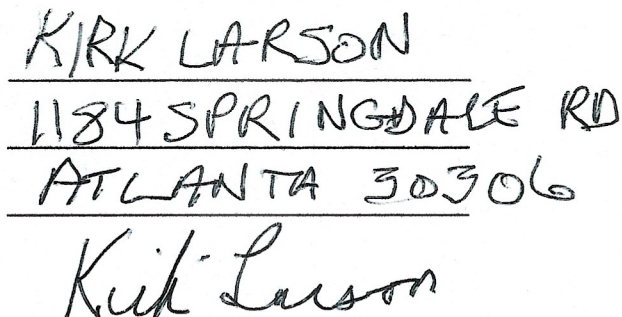 KIRK LARSON
1184 SPRINGDALE RD
ATLANTA 30306
Kirk Larson